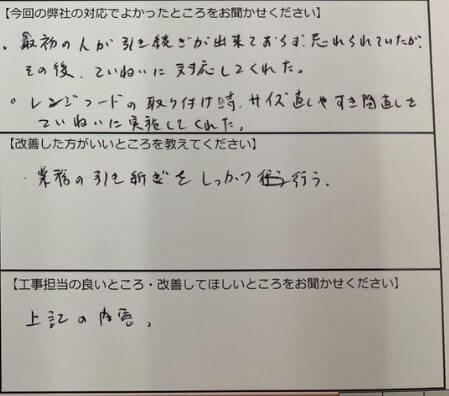 【今回の弊社の対応でよかったところをお聞かせください】
。最初の人が引き続ぎが出来ておらず、忘れられていたが、
その後、ていねいに対応してくれた。
○ レンジフードの取り付け時、サイズ直しやすき間直しを
ていねいに実施してくれた。
【改善した方がいいところを教えてください】
・業務の引き継ぎをしっかり行う。
【工事担当の良いところ・改善してほしいところをお聞かせください】
上記の内容、